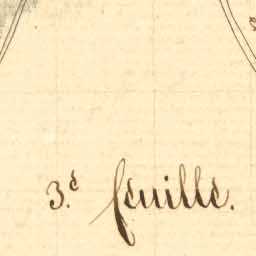 3.e feuille.